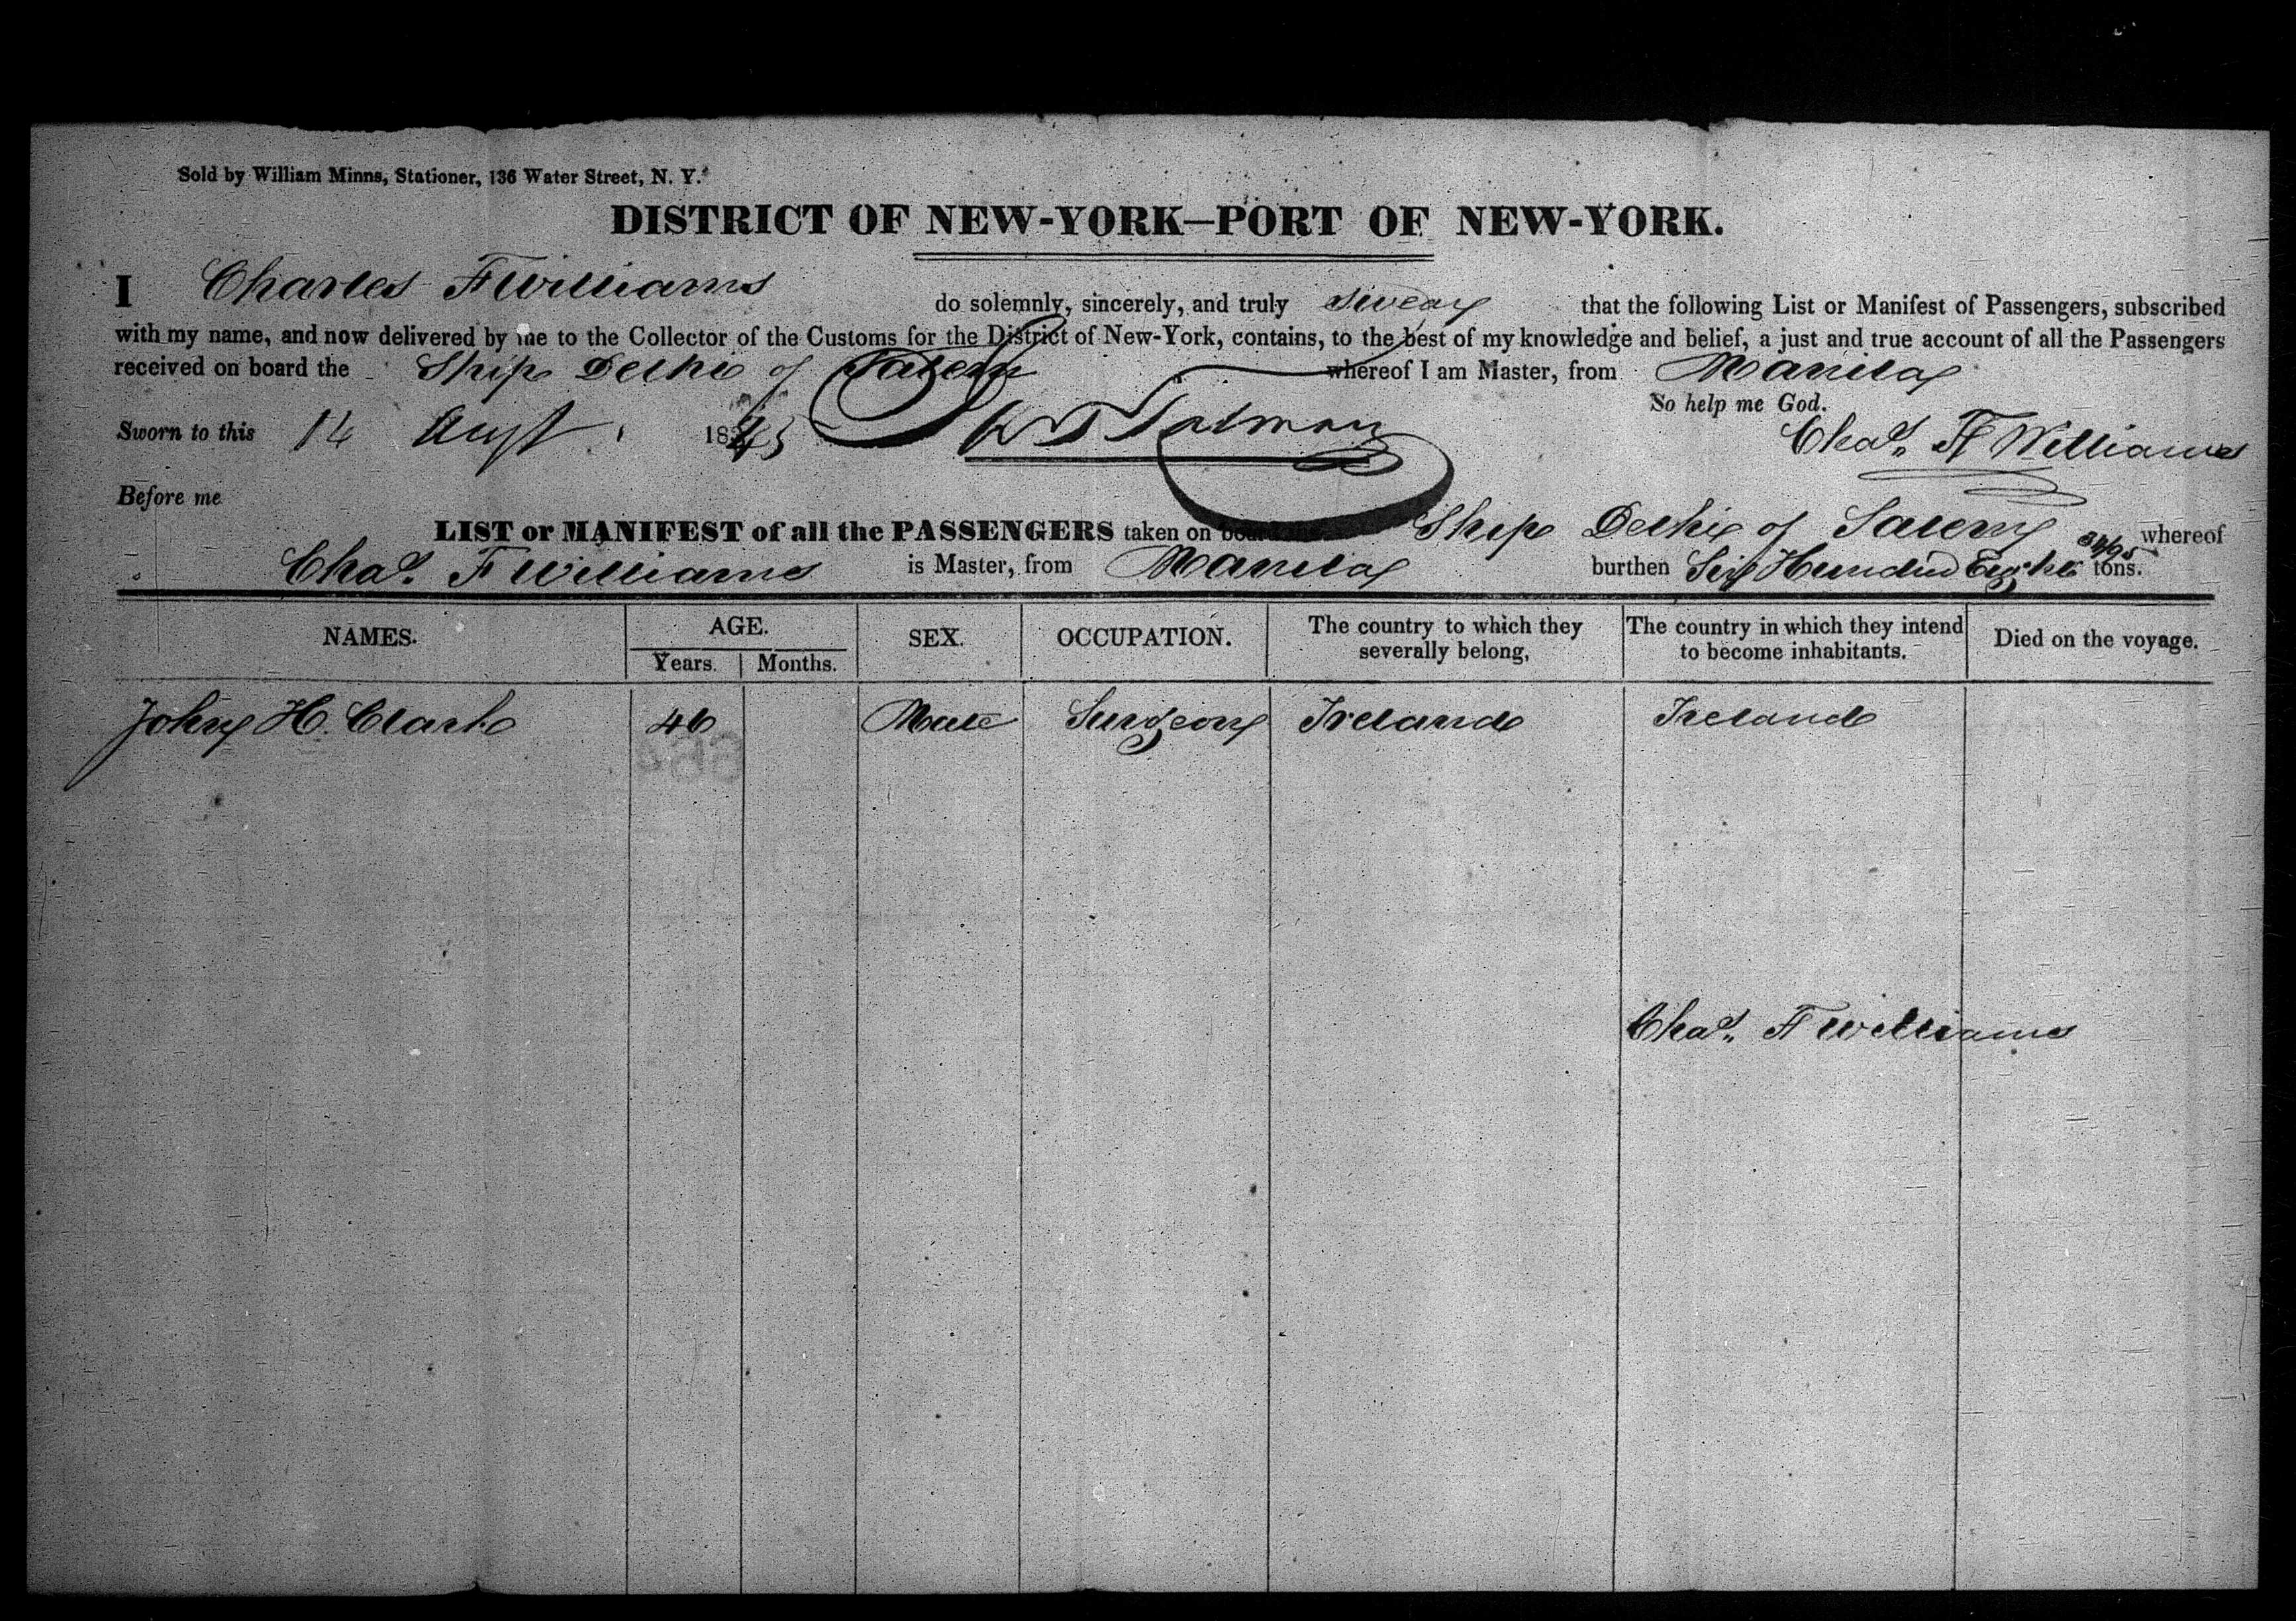 Sold by William Minns, Stationer, 136 Water Street, N. Y.
DISTRICT OF NEW-YORK—PORT OF NEW-YORK.
I Charles F Williams do solemnly, sincerely, and truly swear that the following List or Manifest of Passengers, subscribed
with my name, and now delivered by me to the Collector of the Customs for the District of New-York, contains, to the best of my knowledge and belief, a just and true account of all the Passengers
received on board the Ship Delhi of Salem whereof I am Master, from Manila
So help me God.
Sworn to this 14 Augst 1845 Chas. F Williams
Before me
LIST or MANIFEST of all the PASSENGERS taken on board the Ship Delhi of Salem whereof
Chas. F Williams is Master, from Manila burthen Six Hundred Eighty tons.
NAMES. AGE. SEX. OCCUPATION. The country to which they severally belong, The country in which they intend to become inhabitants. Died on the voyage.
Years. Months.
John H. Clark 46 Male Surgeon Ireland Ireland
Chas. F Williams